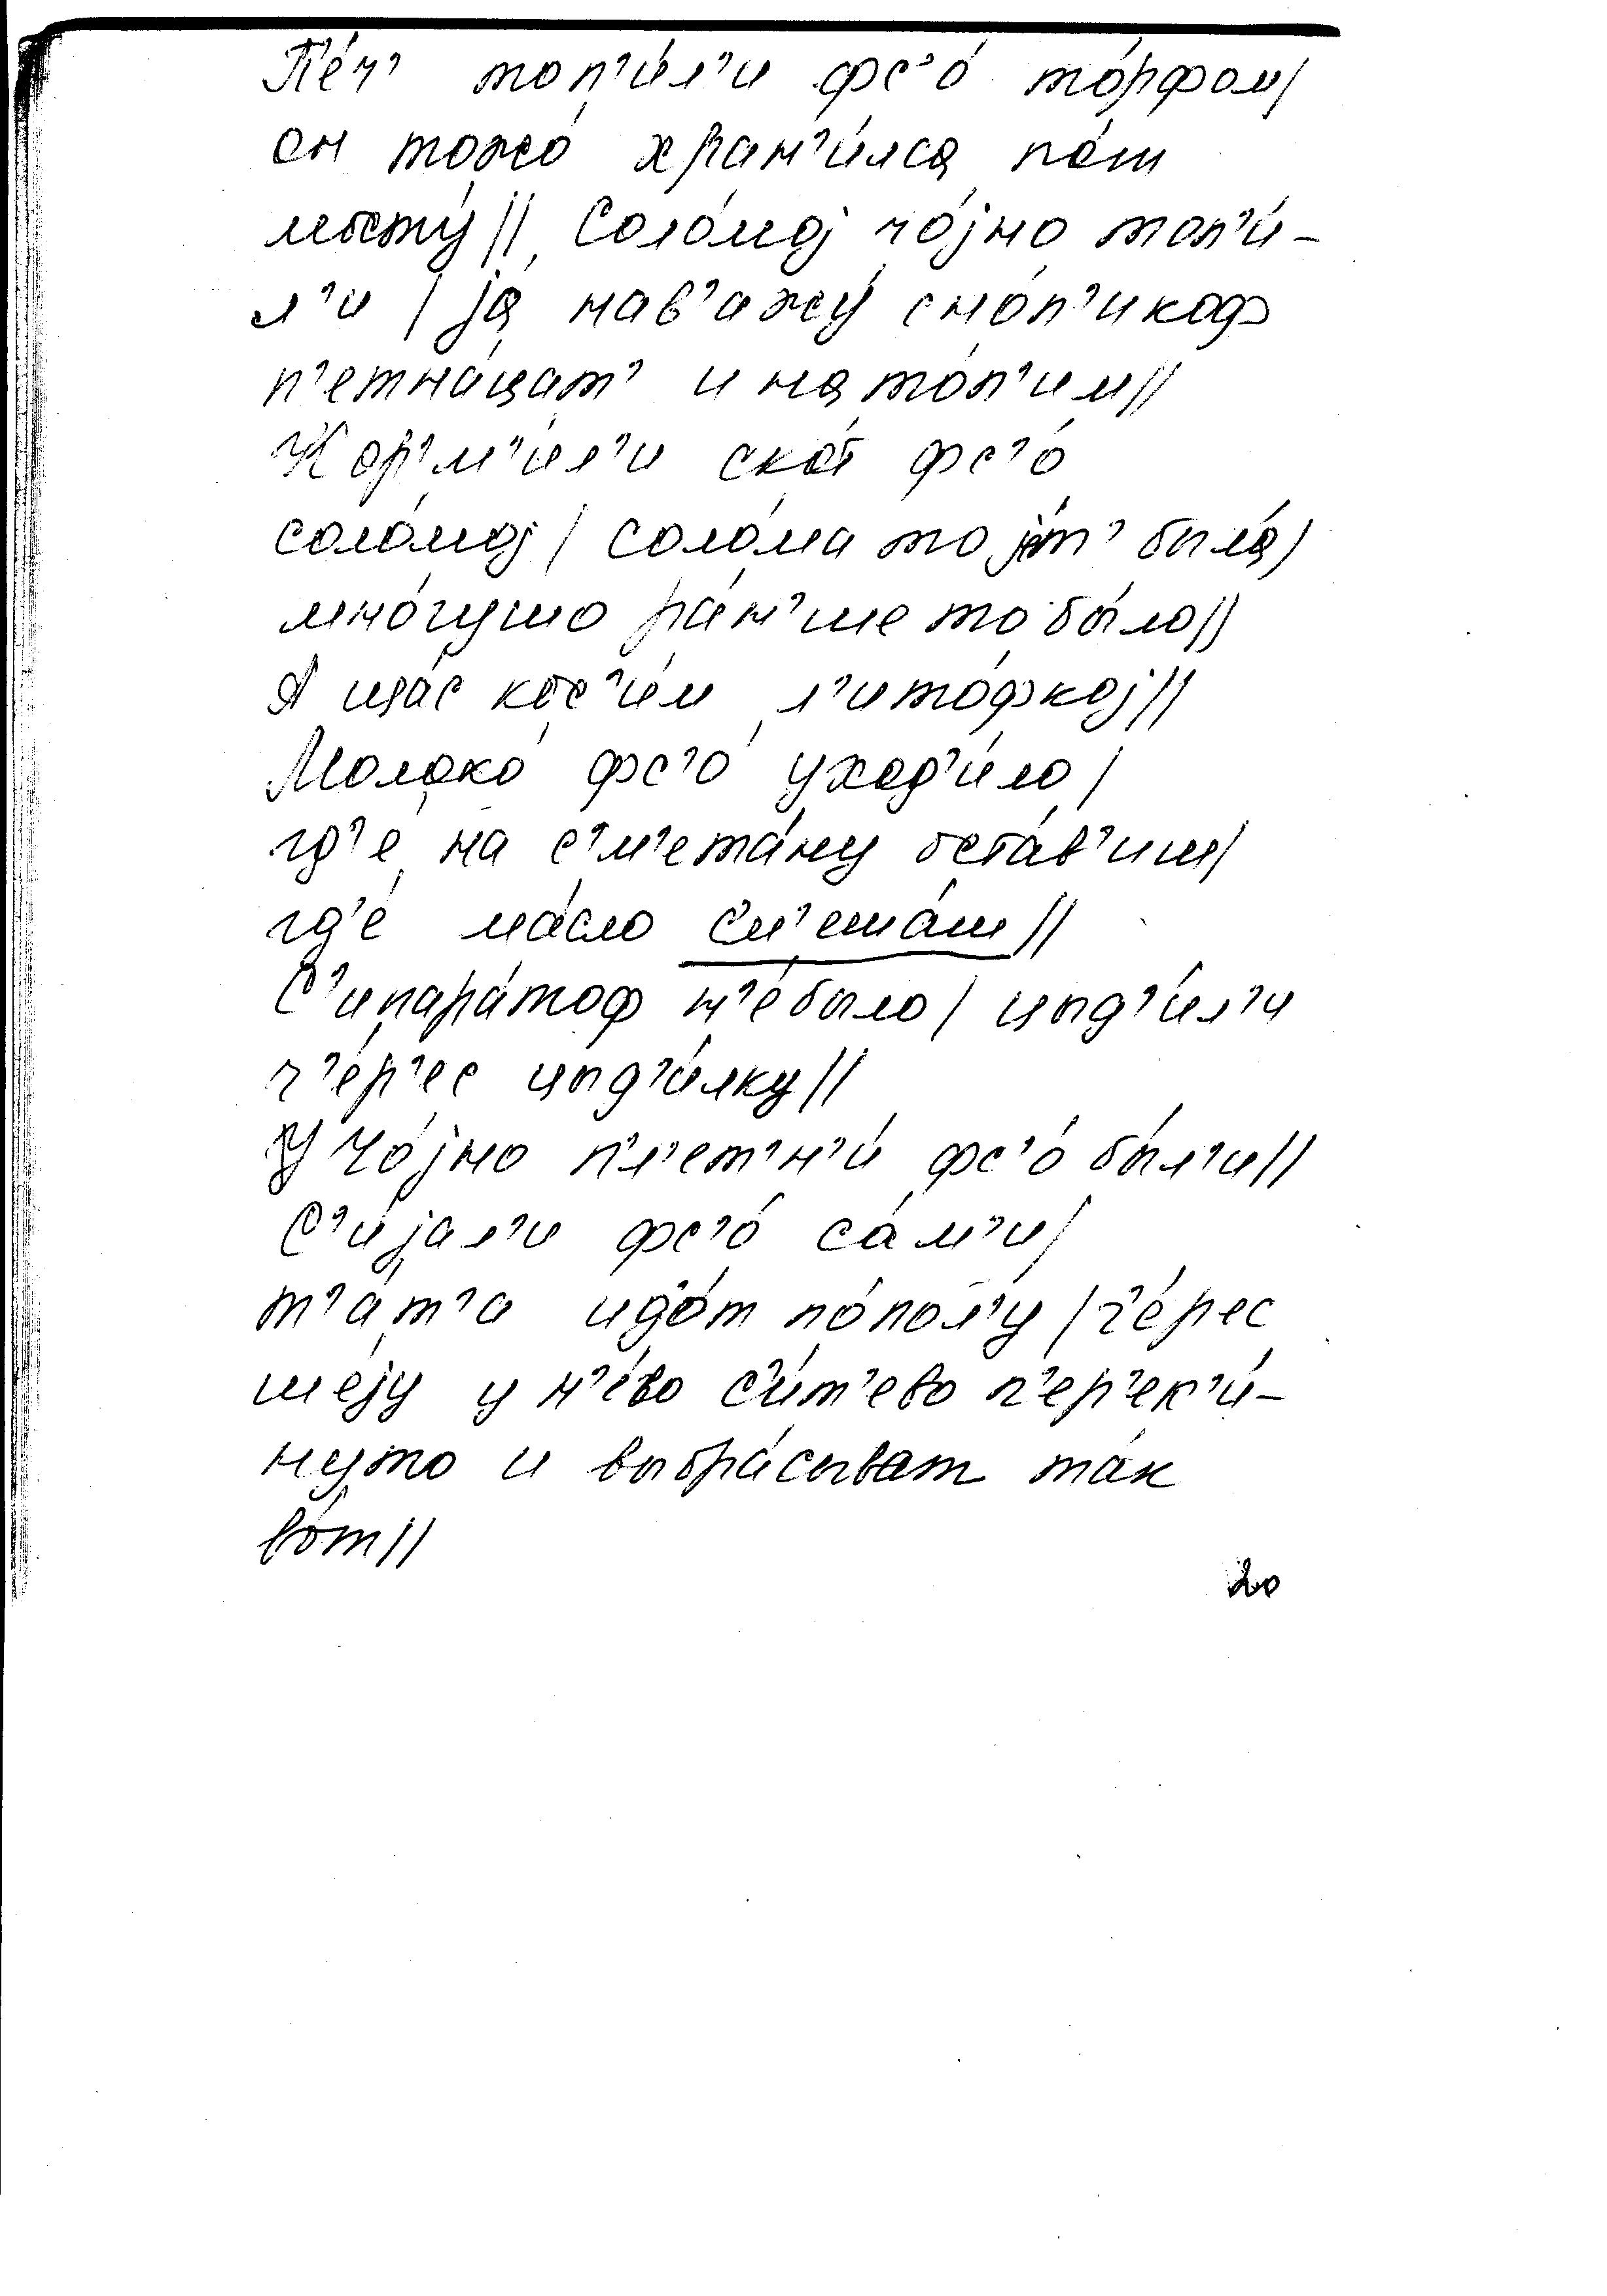 Пе́ч' топ'и́л'и фс'о́ то́рфом/
он тожо́ хран'и́лса по́ш
мысту́// Соло́мој чо́јно топ'и́-
л'и / ја нав'ажу́ сно́п'икоф
п'етна́цат' и нато́п'им//
Корʼм'и́л'и ско́т фс'о́
соло́мој / соло́ма то је́т' была́/
мно́гушо ра́н'ше то бы́ло//
А ща́с кос'и́м л'ито́фкој//
Молоко́ фс'о́ уход'и́ло /
гд'е́ на с'м'ета́ну оста́в'иш/
гд'е́ ма́сло см'еша́ш//
С'ипара́тоф н'е́было / цыд'и́л'и
ч'е́р'ес цыд'и́лку//
У чо́јно пл'ет'н'и́ фс'о́ бы́л'и//
С'и́јал'и фс'о́ са́м'и/
т'а́т'а идо́т по́пол'у / ч'е́рес
ше́ју у н'е́во с'и́т'ево п'ер'ек'и́-
нуто и выбра́сыват та́к
во́т//
20